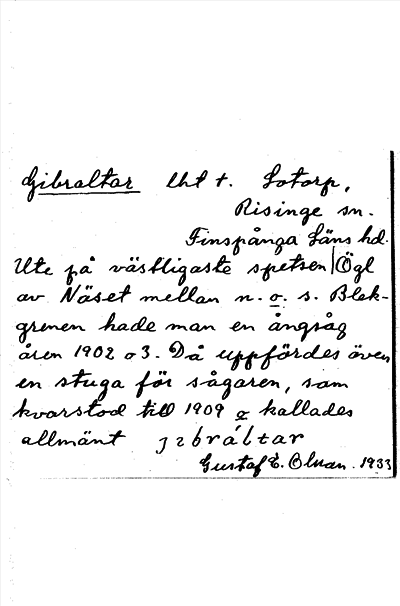 Gibraltar lht t. Lotorp,
Risinge sn.
Finspånga Läns hd.
Ute på västligaste spetsen Ögl
av Näset mellan n. o. s. Blek-
grenen hade man en ångsåg
åren 1902 o 3. Då uppfördes även
en stuga för sågaren, som
kvarstod till 1909 o kallades
allmänt
Gustaf E. 1933